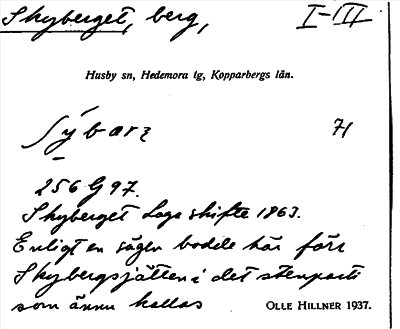 Skyberget, berg, I-III
Husby sn, Hedemora tg, Kopparbergs län.
71
256 G 97.
Skyberget Laga skifte 1863.
Enligt en sägen bodde här förr
Skybergsjätten i det stenparti
som ännu kallas OLLE HILLNER 1937.